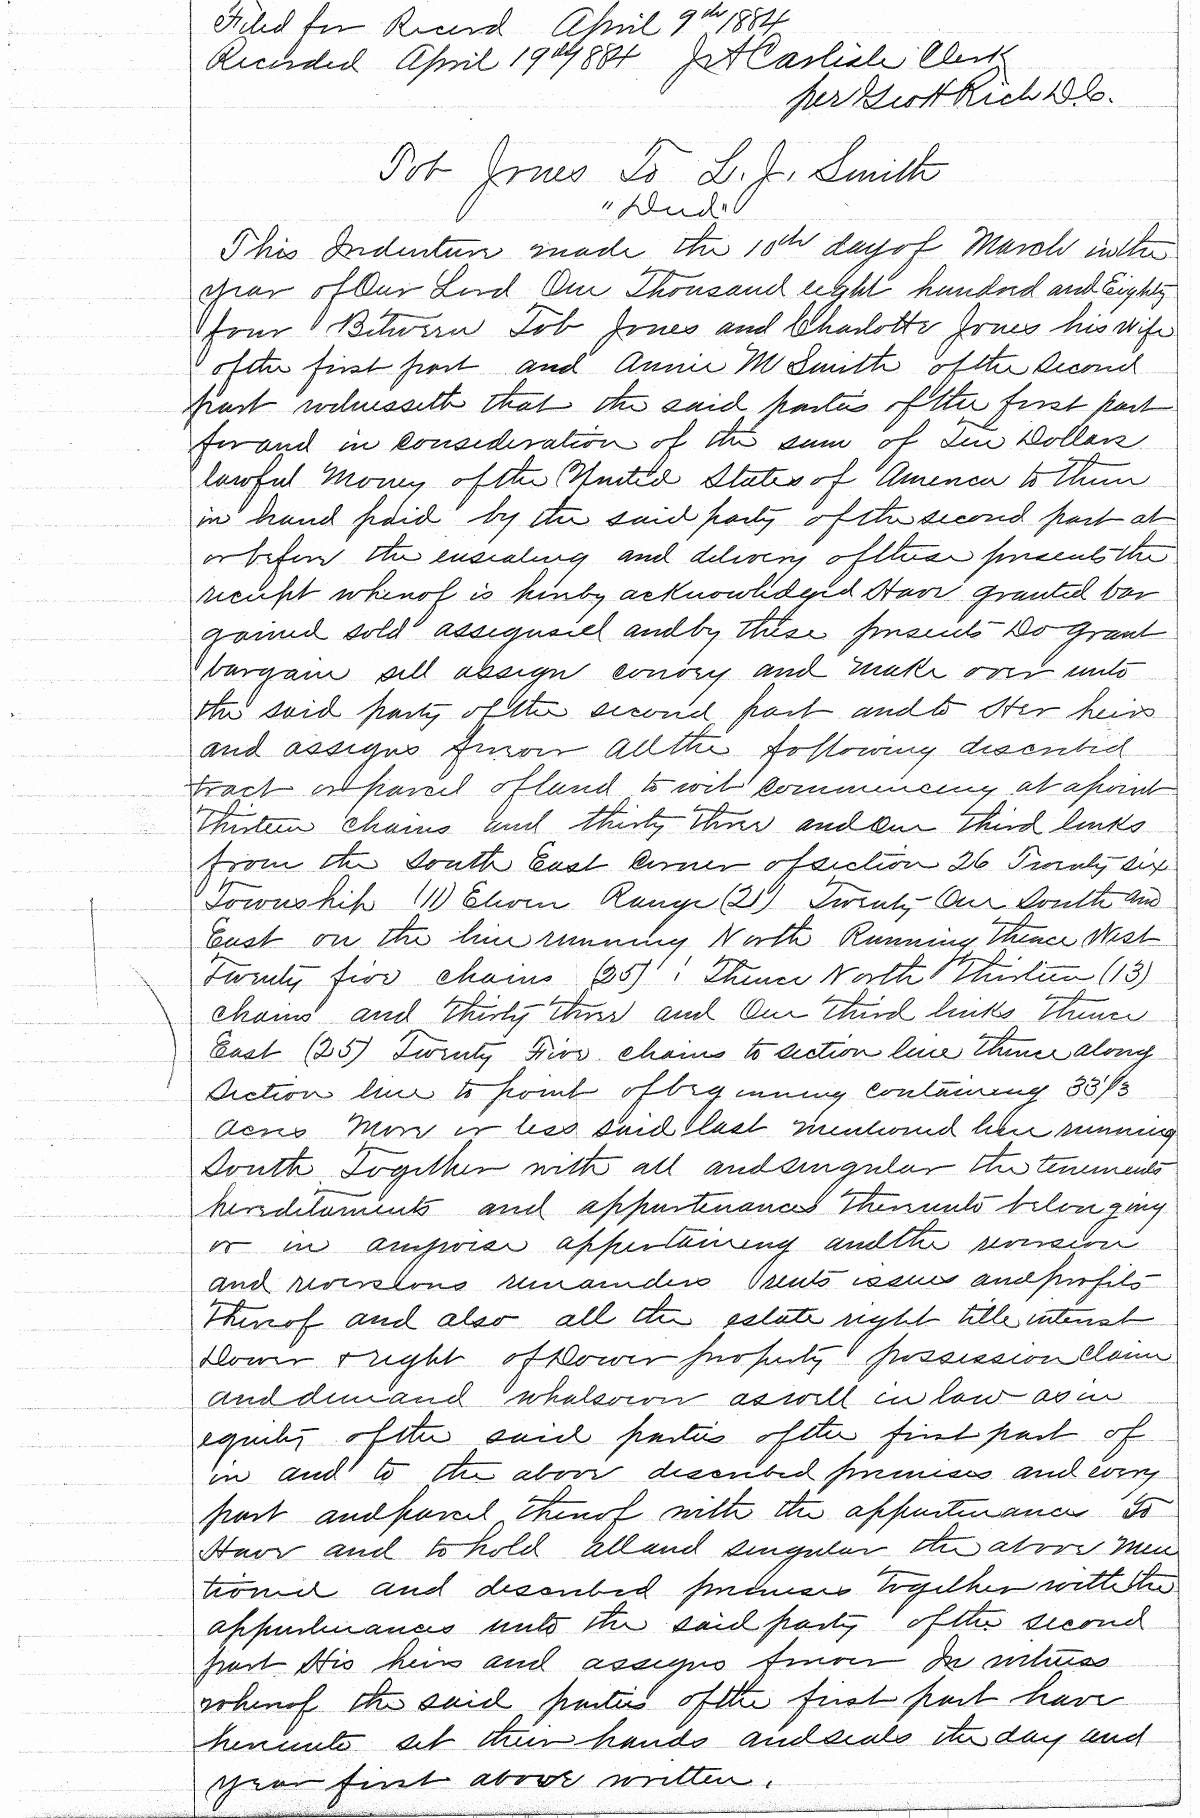 Filed for Record April 9th 1884
Recorded April 19th 1884 Jas A Carlisle Clerk
per Geo H Rich D.C.
Tob Jones To L. J. Smith
"Deed"
This Indenture made the 10th day of March in the
year of Our Lord One Thousand eight hundred and Eighty
four Between Tob Jones and Charlotte Jones his Wife
of the first part and Annie M Smith of the Second
part witnesseth that the said parties of the first part
for and in consideration of the sum of Ten Dollars
lawful Money of the United States of America to them
in hand paid by the said party of the second part at
or before the ensealing and delivery of these presents the
receipt whereof is hereby acknowledged Have granted bar
gained sold assigned and by these presents Do grant
bargain sell assign convey and make over unto
the said party of the second part and to Her heirs
and assigns forever all the following described
tract or parcel of land to wit commencing at a point
Thirteen chains and thirty three and One third links
from the South East Corner of section 26 Twenty six
Township (11) Eleven Range (21) Twenty-One South and
East on the line running North Running Thence West
Twenty five chains (25) : Thence North Thirteen (13)
chains and Thirty three and One third links Thence
East (25) Twenty Five chains to section line Thence along
Section line to point of beginning containing 33 1/3
acres More or less said last mentioned line running
South Together with all and singular the tenements
hereditaments and appurtenances Thereunto belonging
or in anywise appertaining and the reversion
and reversions remainders rents issues and profits
Thereof and also all the estate right title interest
Dower & right of Dower property possession Claim
and demand whatsoever as well in law as in
equity of the said parties of the first part of
in and to the above described premises and every
part and parcel thereof with the appurtenances To
Have and to hold all and singular the above men
tioned and described premises together with the
appurtenances unto the said party of the second
part His heirs and assigns forever In witness
whereof the said parties of the first part have
hereunto set their hands and seals the day and
year first above written.